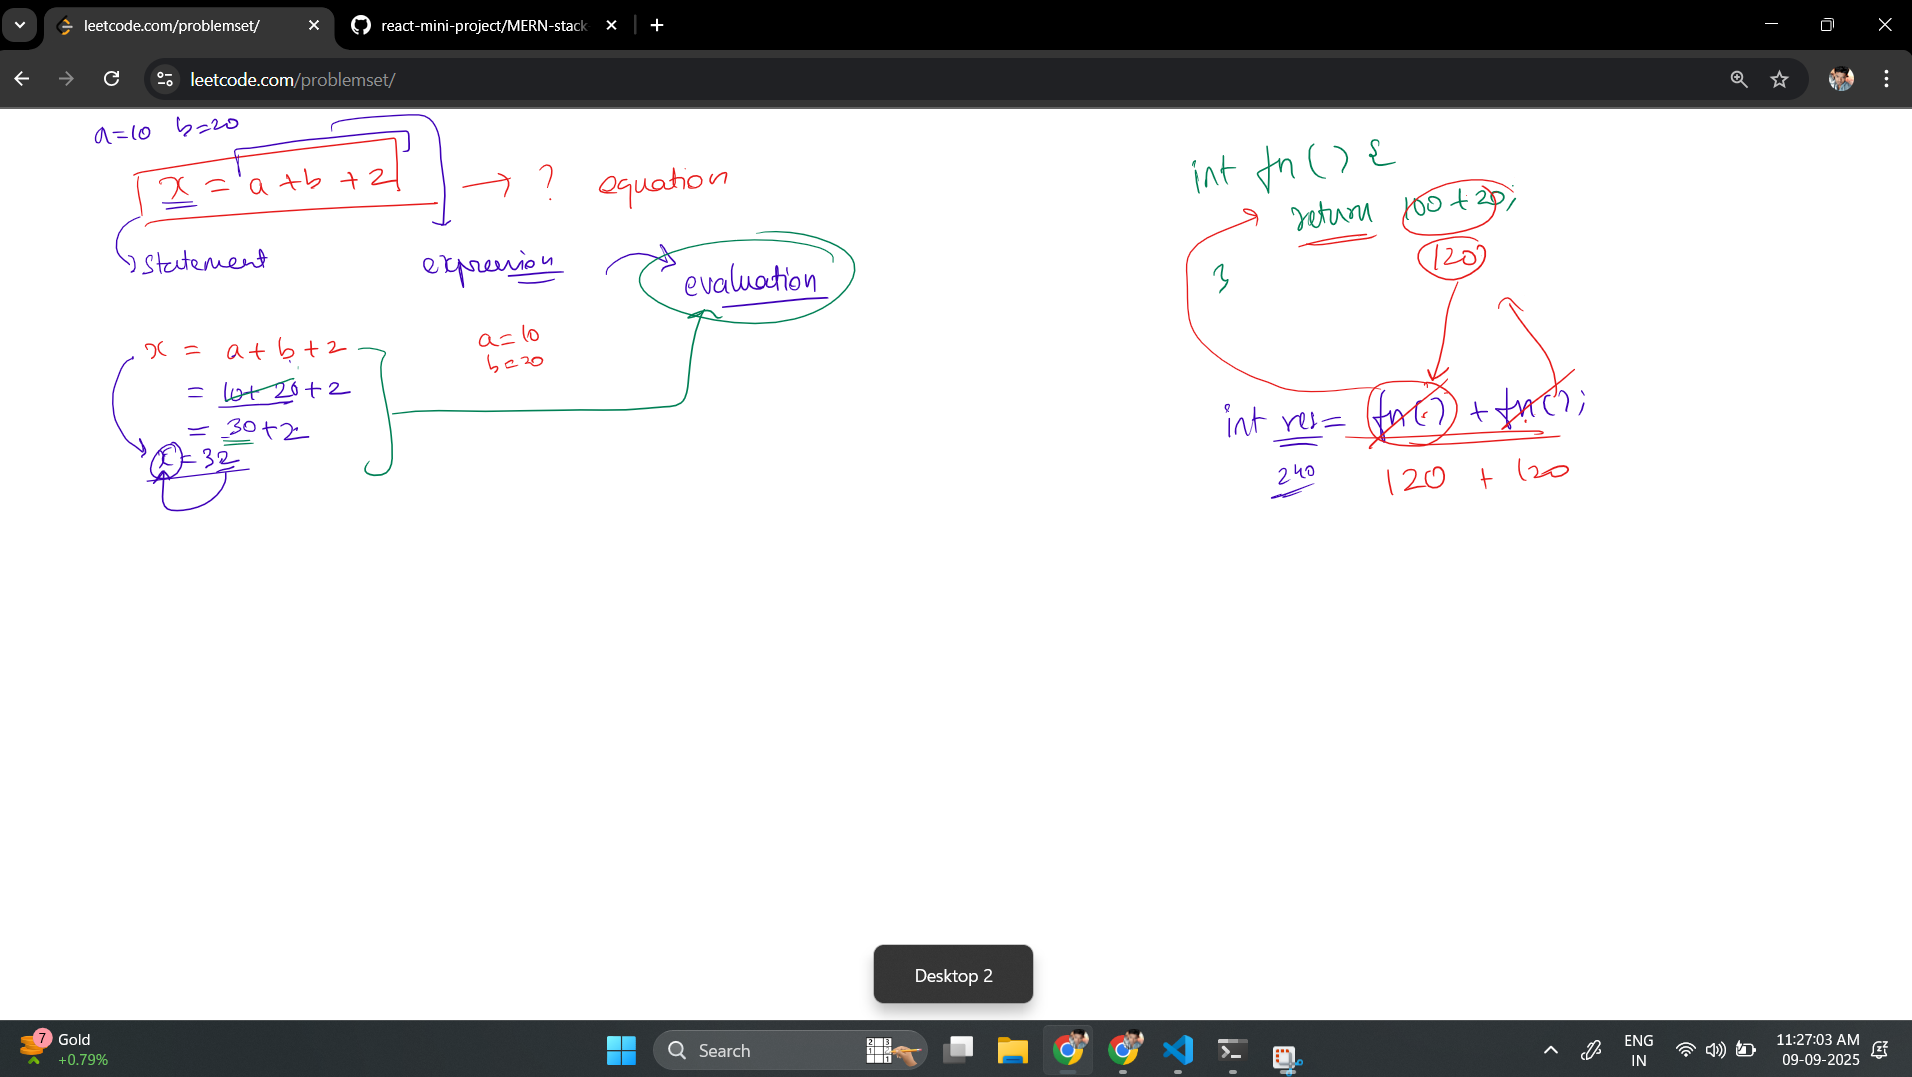 leetcode.com/problemset/
react-mini-project/MERN-stack
leetcode.com/problemset/
a=10 b=20
x = a+b+2 → ? equation
statement
expression
evaluation
x = a+b+2
= 10+20+2
= 30+2
x = 32
a=10
b=20
int fn() {
return 100+20;
120
}
int res = fn() + fn();
240
120 + 120
Desktop 2
7
Gold
+0.79%
Search
ENG
IN
11:27:03 AM
09-09-2025